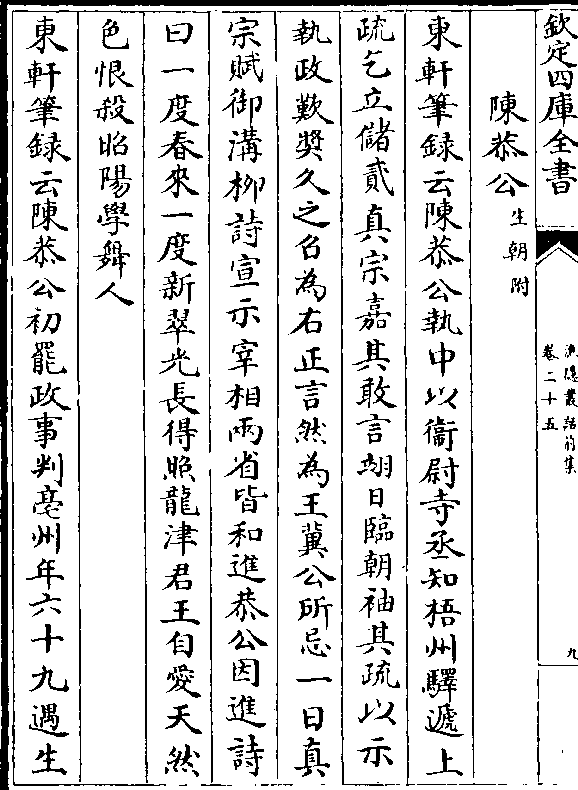 欽定四庫全書
漁隱叢話前集
卷二十五
九
陳恭公生朝附
東軒筆録云陳恭公執中以衞尉寺丞知梧州驛遞上
疏乞立儲貳真宗嘉其敢言翊日臨朝袖其疏以示
執政歎奬久之召為右正言然為王冀公所忌一日真
宗賦御溝栁詩宣示宰相兩省皆和進恭公因進詩
曰一度春來一度新翠光長得照龍津君王自愛天然
色恨殺昭陽學舞人
東軒筆録云陳恭公初罷政事判亳州年六十九遇生